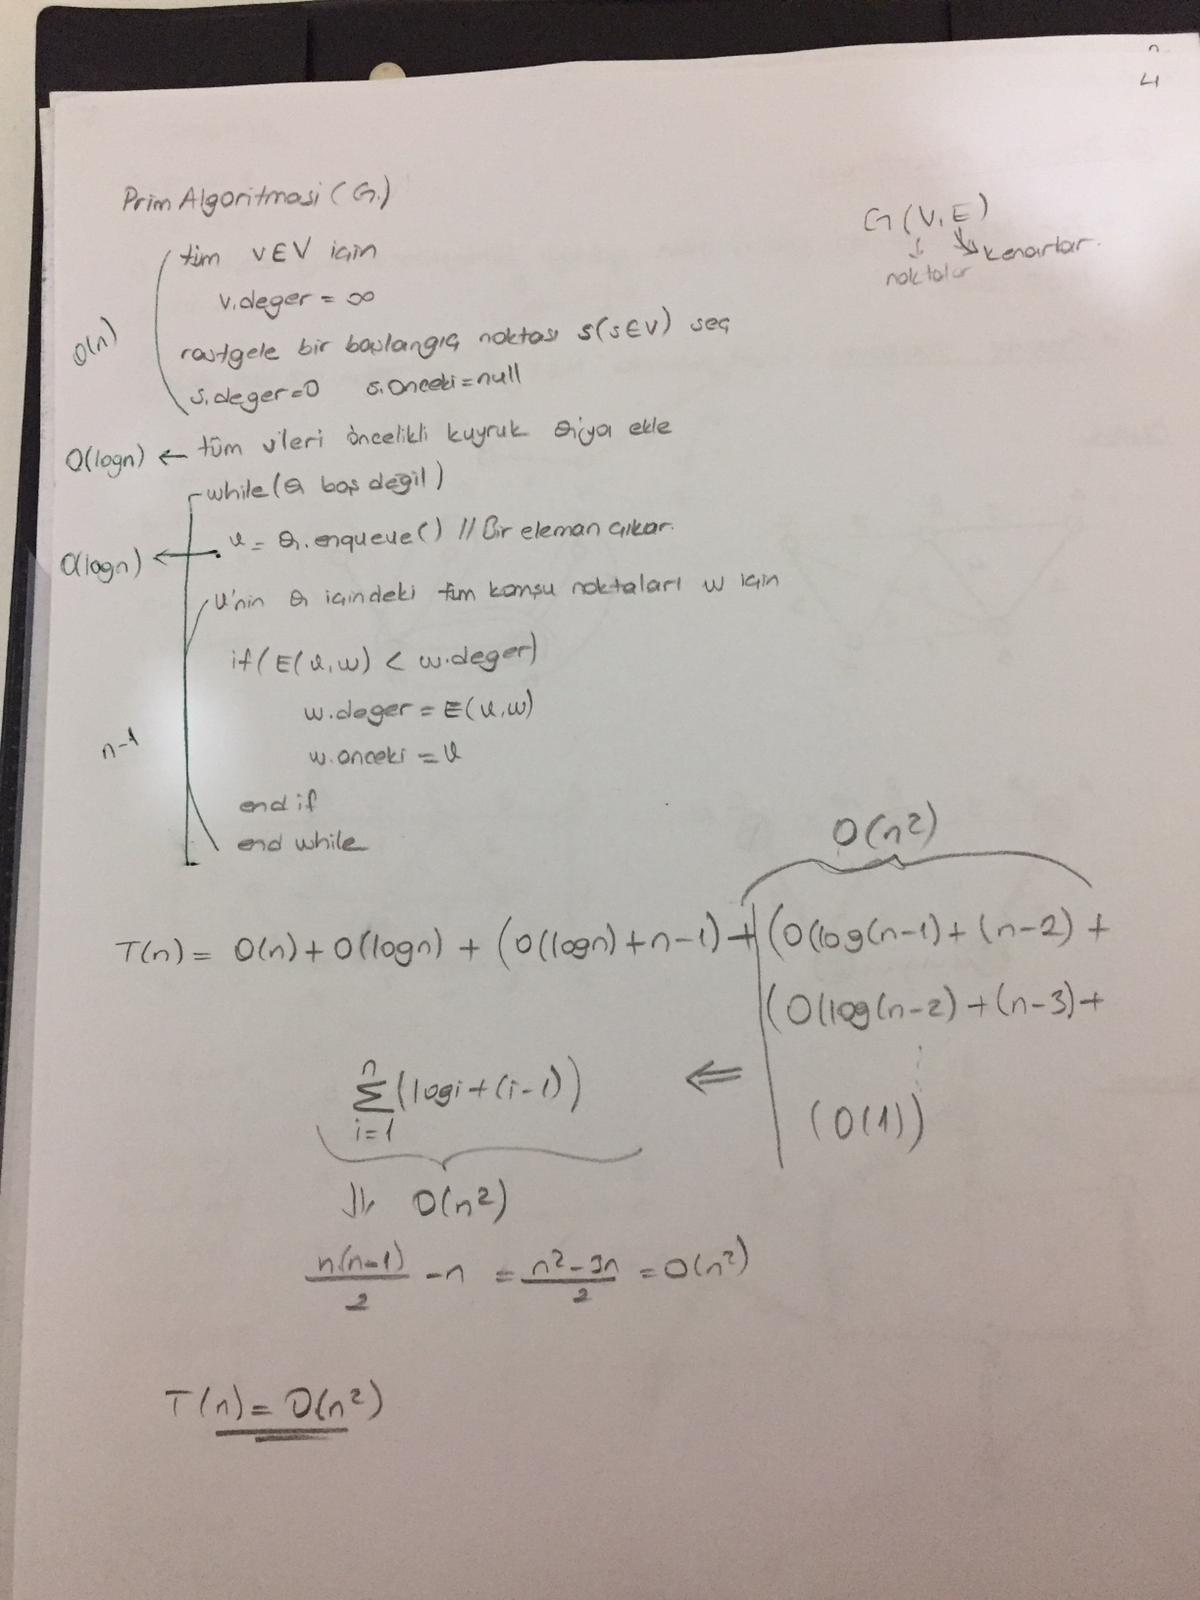 4
Prim Algoritması (G)
G(V,E)
noktalar
kenarlar
tüm v∈V için
v.deger = ∞
O(n)
rastgele bir başlangıç noktası s(s∈V) seç
s.deger=0 s.onceki=null
O(logn) ← tüm v'leri öncelikli kuyruk Q'ya ekle
while(Q boş değil)
O(logn) ← u = Q.enqueue() // Bir eleman çıkar.
u'nin Q içindeki tüm komşu noktaları w için
if(E(u,w) < w.deger)
w.deger = E(u,w)
n-1
w.onceki = u
end if
end while
O(n²)
T(n) = O(n)+O(logn) + (O(logn)+n-1) + (O(log(n-1)+(n-2) +
(O(log(n-2)+(n-3)+
(O(1))
⇐
n
∑(logi+(i-1))
i=1
⇓ O(n²)
n(n-1)/2 -n = n²-3n/2 = O(n²)
T(n) = O(n²)